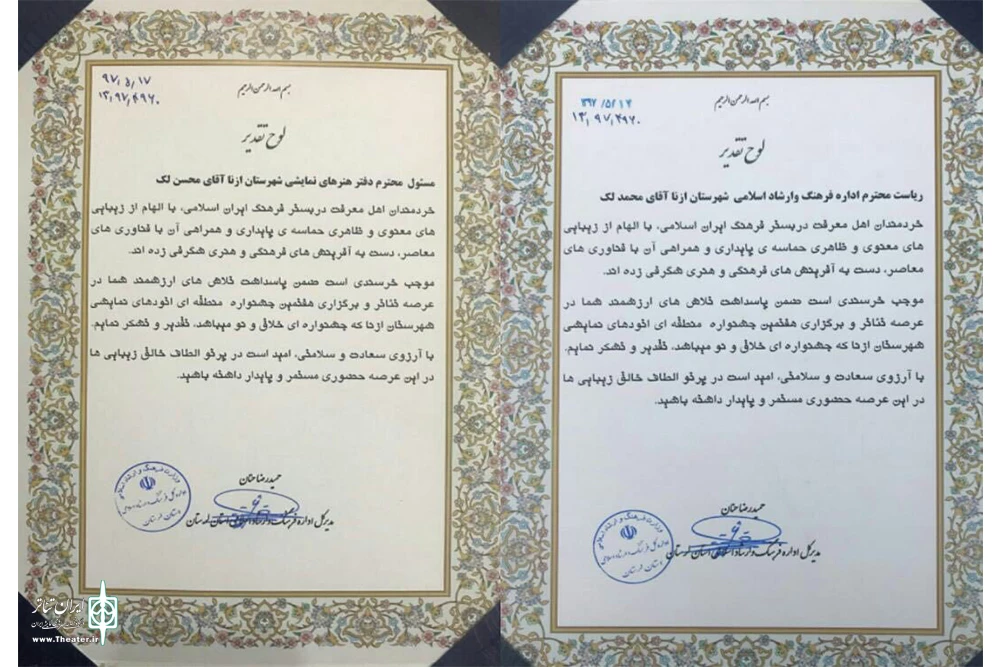 بسم الله الرحمن الرحیم
۹۷/۵/۱۷
۱۳/۹۷/۴۹۶۰
لوح تقدیر
مسئول محترم دفتر هنرهای نمایشی شهرستان ازنا آقای محسن لک
خردمندان اهل معرفت دربستر فرهنگ ایران اسلامی، با الهام از زیبایی
های معنوی و ظاهری حماسه ی پایداری و همراهی آن با فناوری های
معاصر، دست به آفرینش های فرهنگی و هنری شگرفی زده اند.
موجب خرسندی است ضمن پاسداشت تلاش های ارزشمند شما در
عرصه تئاتر و برگزاری هفتمین جشنواره منطقه ای اتودهای نمایشی
شهرستان ازنا که جشنواره ای خلاق و نو میباشد، تقدیر و تشکر نمایم.
با آرزوی سعادت و سلامتی، امید است در پرتو الطاف خالق زیبایی ها
در این عرصه حضوری مستمر و پایدار داشته باشید.
حمیدرضا حنان
مدیرکل اداره فرهنگ و ارشاد اسلامی استان لرستان
وزارت فرهنگ و ارشاد اسلامی
اداره کل فرهنگ و ارشاد اسلامی
استان لرستان
ایران تئاتر
www.Theater.ir
بسم الله الرحمن الرحیم
۳۹۷/۵/۱۴
۱۳/۹۷/۴۹۶۰
لوح تقدیر
ریاست محترم اداره فرهنگ وارشاد اسلامی شهرستان ازنا آقای محمد لک
خردمندان اهل معرفت دربستر فرهنگ ایران اسلامی، با الهام از زیبایی
های معنوی و ظاهری حماسه ی پایداری و همراهی آن با فناوری های
معاصر، دست به آفرینش های فرهنگی و هنری شگرفی زده اند.
موجب خرسندی است ضمن پاسداشت تلاش های ارزشمند شما در
عرصه تئاتر و برگزاری هفتمین جشنواره منطقه ای اتودهای نمایشی
شهرستان ازنا که جشنواره ای خلاق و نو میباشد، تقدیر و تشکر نمایم.
با آرزوی سعادت و سلامتی، امید است در پرتو الطاف خالق زیبایی ها
در این عرصه حضوری مستمر و پایدار داشته باشید.
حمیدرضا حنان
مدیرکل اداره فرهنگ و ارشاد اسلامی استان لرستان
وزارت فرهنگ و ارشاد اسلامی
اداره کل فرهنگ و ارشاد اسلامی
استان لرستان